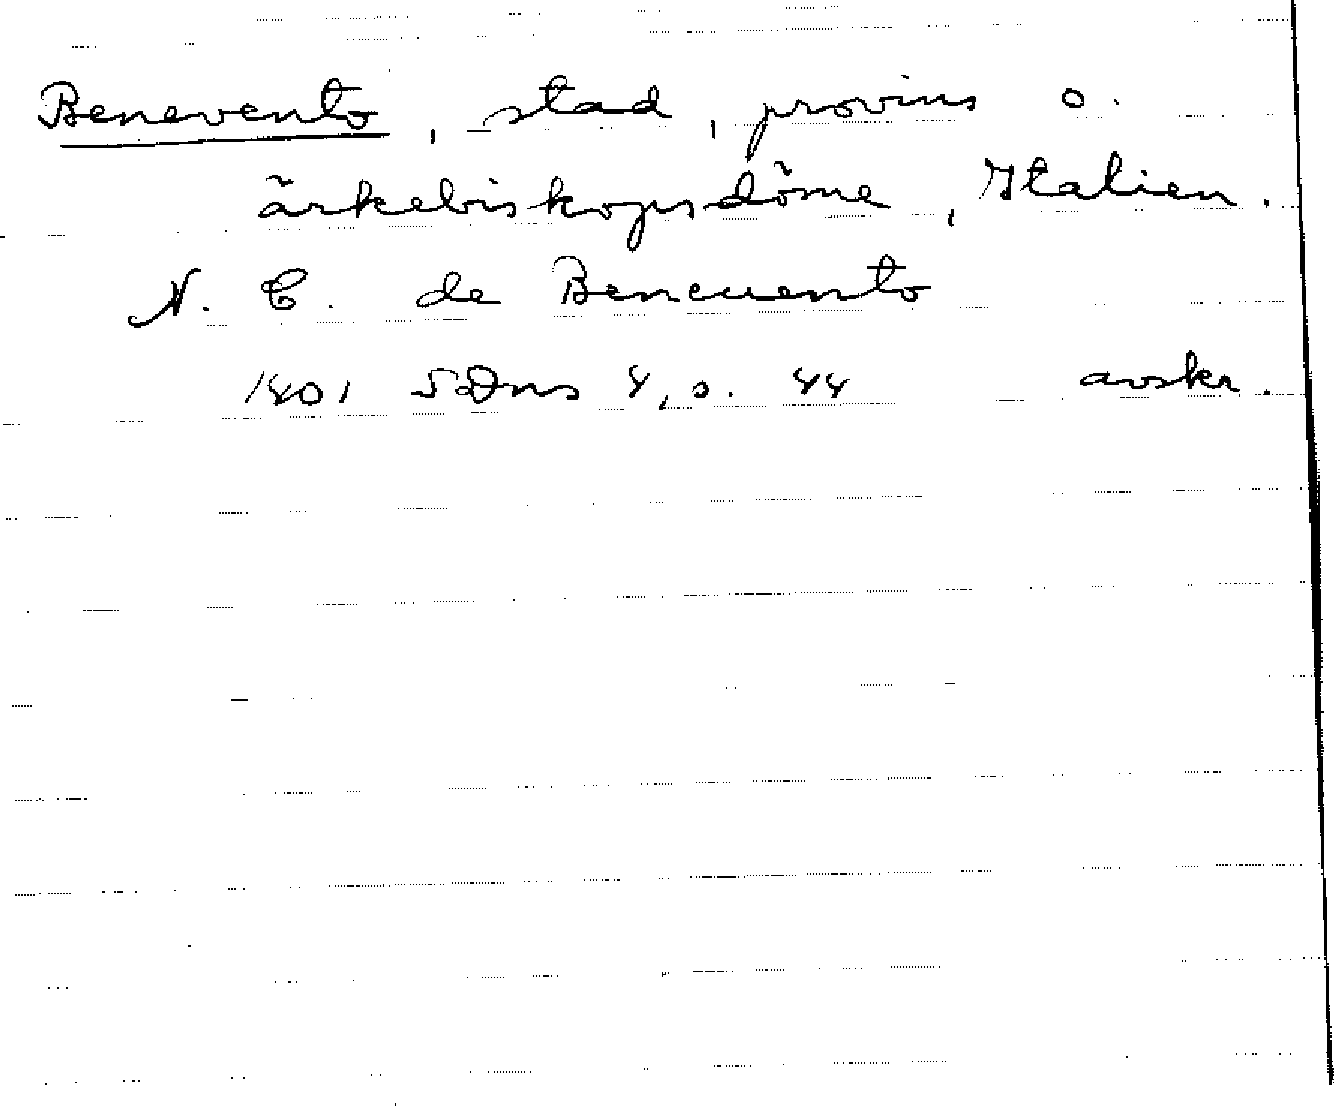 Benevento, stad, provins o.
ärkebiskopsdöme, Italien.
N. C. de Beneuento
1401 SDns 4, s. 44 avskr.